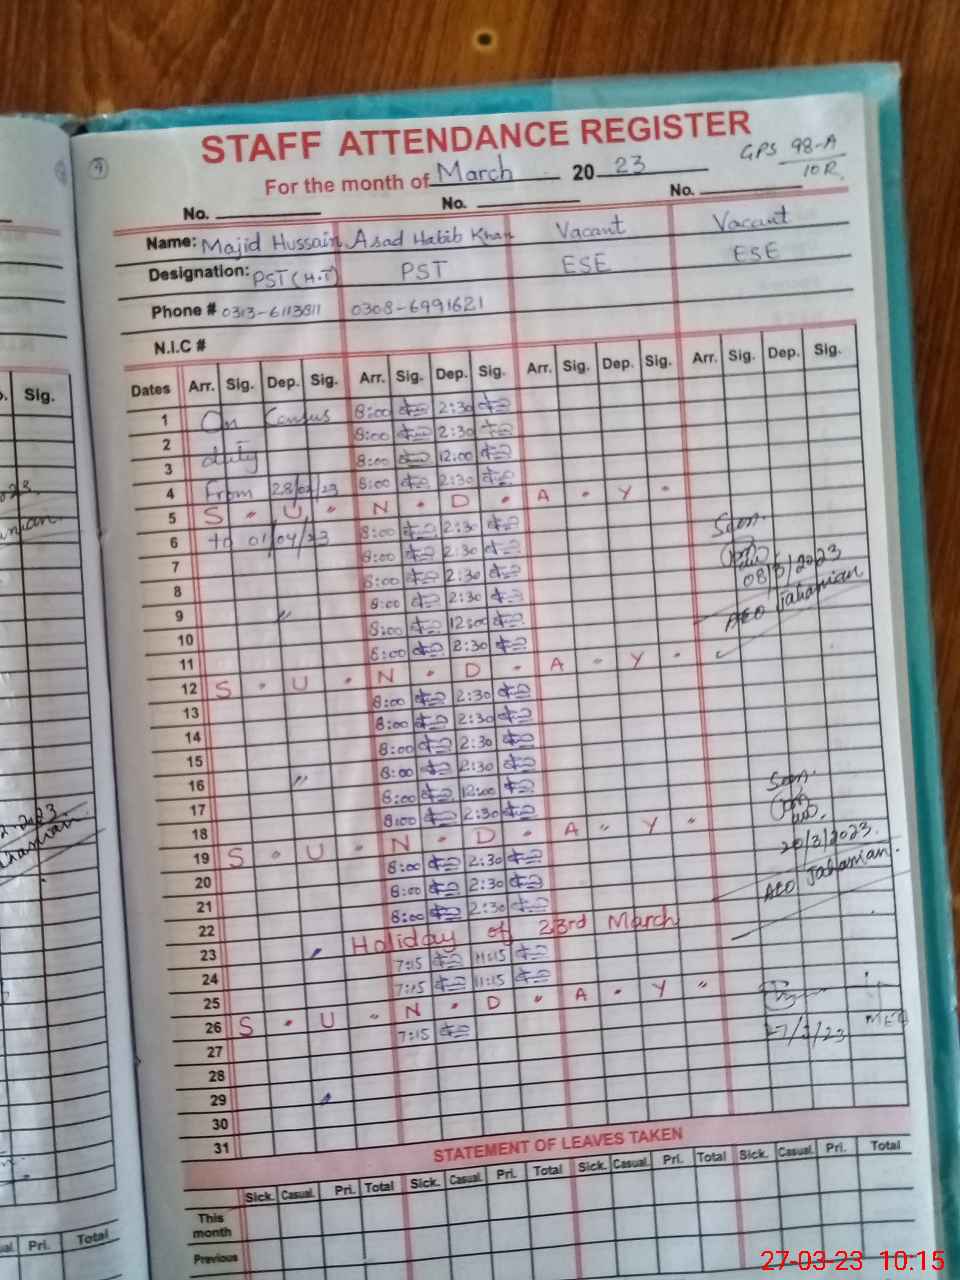 STAFF ATTENDANCE REGISTER
For the month of March 2023
GPS 98-A
10R.
No. No. No.
Name: Majid Hussain Asad Habib Khan Vacant Vacant
Designation: PST (H.T) PST ESE ESE
Phone # 0313-6113811 0308-6991621
N.I.C #
Dates Arr. Sig. Dep. Sig. Arr. Sig. Dep. Sig. Arr. Sig. Dep. Sig. Arr. Sig. Dep. Sig.
1 On Census 8:00 2:30
2 8:00 2:30
3 duty 8:00 12:00
4 From 28/02/23 8:00 2:30
5 S U N D A Y
6 to 01/04/23 8:00 2:30
7 8:00 2:30
8 8:00 2:30
9 " 8:00 2:30
10 8:00 12:00
11 8:00 2:30
12 S U N D A Y
13 8:00 2:30
14 8:00 2:30
15 8:00 2:30
16 " 8:00 2:30
17 8:00 12:00
18 8:00 2:30
19 S U N D A Y
20 8:00 2:30
21 8:00 2:30
22 8:00 2:30
23 Holiday of 23rd March
24 7:15 11:15
25 7:15 11:15
26 S U N D A Y
27 7:15
28
29
30
31
Seen.
08/3/2023
AEO Jahanian
Seen.
20/3/2023.
AEO Jahanian.
27/3/23
STATEMENT OF LEAVES TAKEN
Sick. Casual. Pri. Total Sick. Casual. Pri. Total Sick. Casual. Pri. Total Sick. Casual. Pri. Total
This month
Previous
Sig.
Pri. Total
27-03-23 10:15